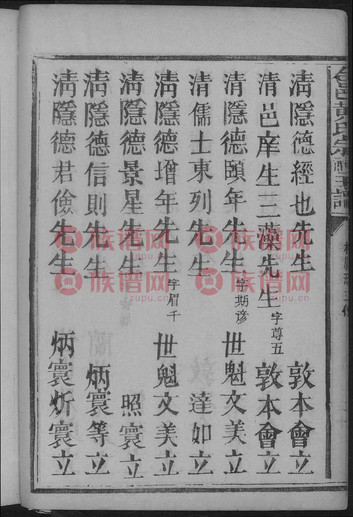 清隱德經也先生 敦本會立
清邑庠生三藻先生字尊五 敦本會立
清隱德頤年先生字期彦 世魁文美立
清儒士東列先生 達如立
清隱德增年先生字眉千 世魁文美立
清隱德景星先生 照寰立
清隱德信則先生 炳寰等立
清隱德君儉先生 炳寰炘寰立
族谱网
zupu.cn
族谱网
zupu.cn